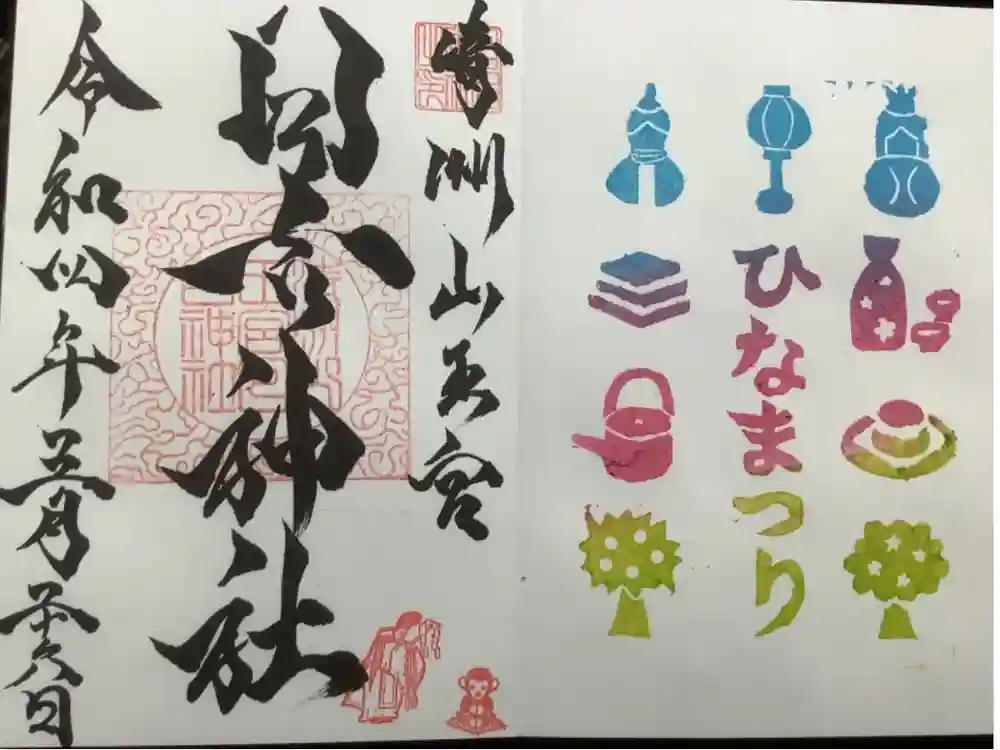 ひなまつり
清洲山王宮
日吉神社
令和四年三月日